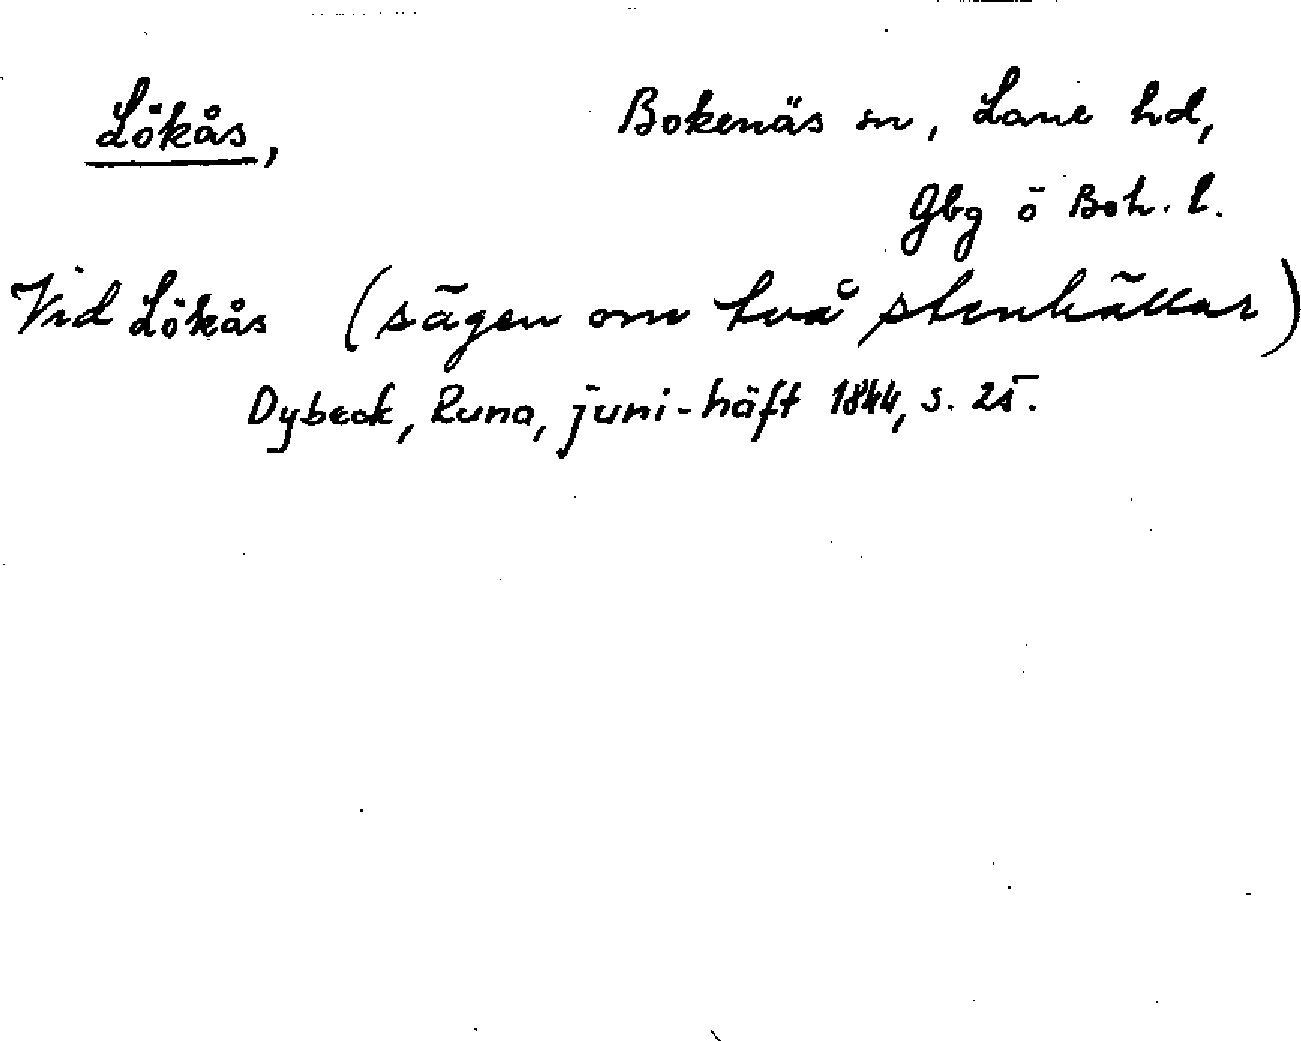 Lökås, Bokenäs sn, Lane hd,
Gbg o Boh. l.
Vid Lökås (sägen om två stenhällar)
Dybeck, Runa, juni-häft 1844, s. 25.